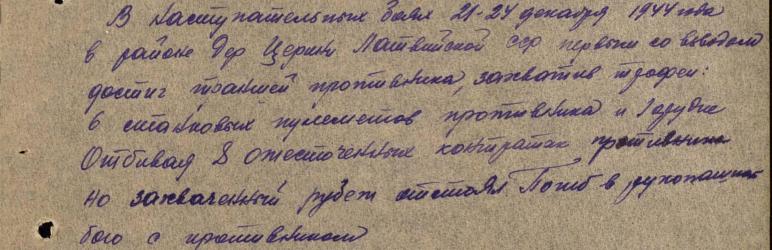 В наступательных боях 21-24 декабря 1944 года
в районе дер Церини Латвийской ССР первым со взводом
достиг траншей противника, захватив трофеи:
6 станковых пулеметов противника и 1 орудие
Отбивая 8 ожесточенных контратак противника
но захваченный рубеж отстоял. Погиб в рукопашном
бою с противником